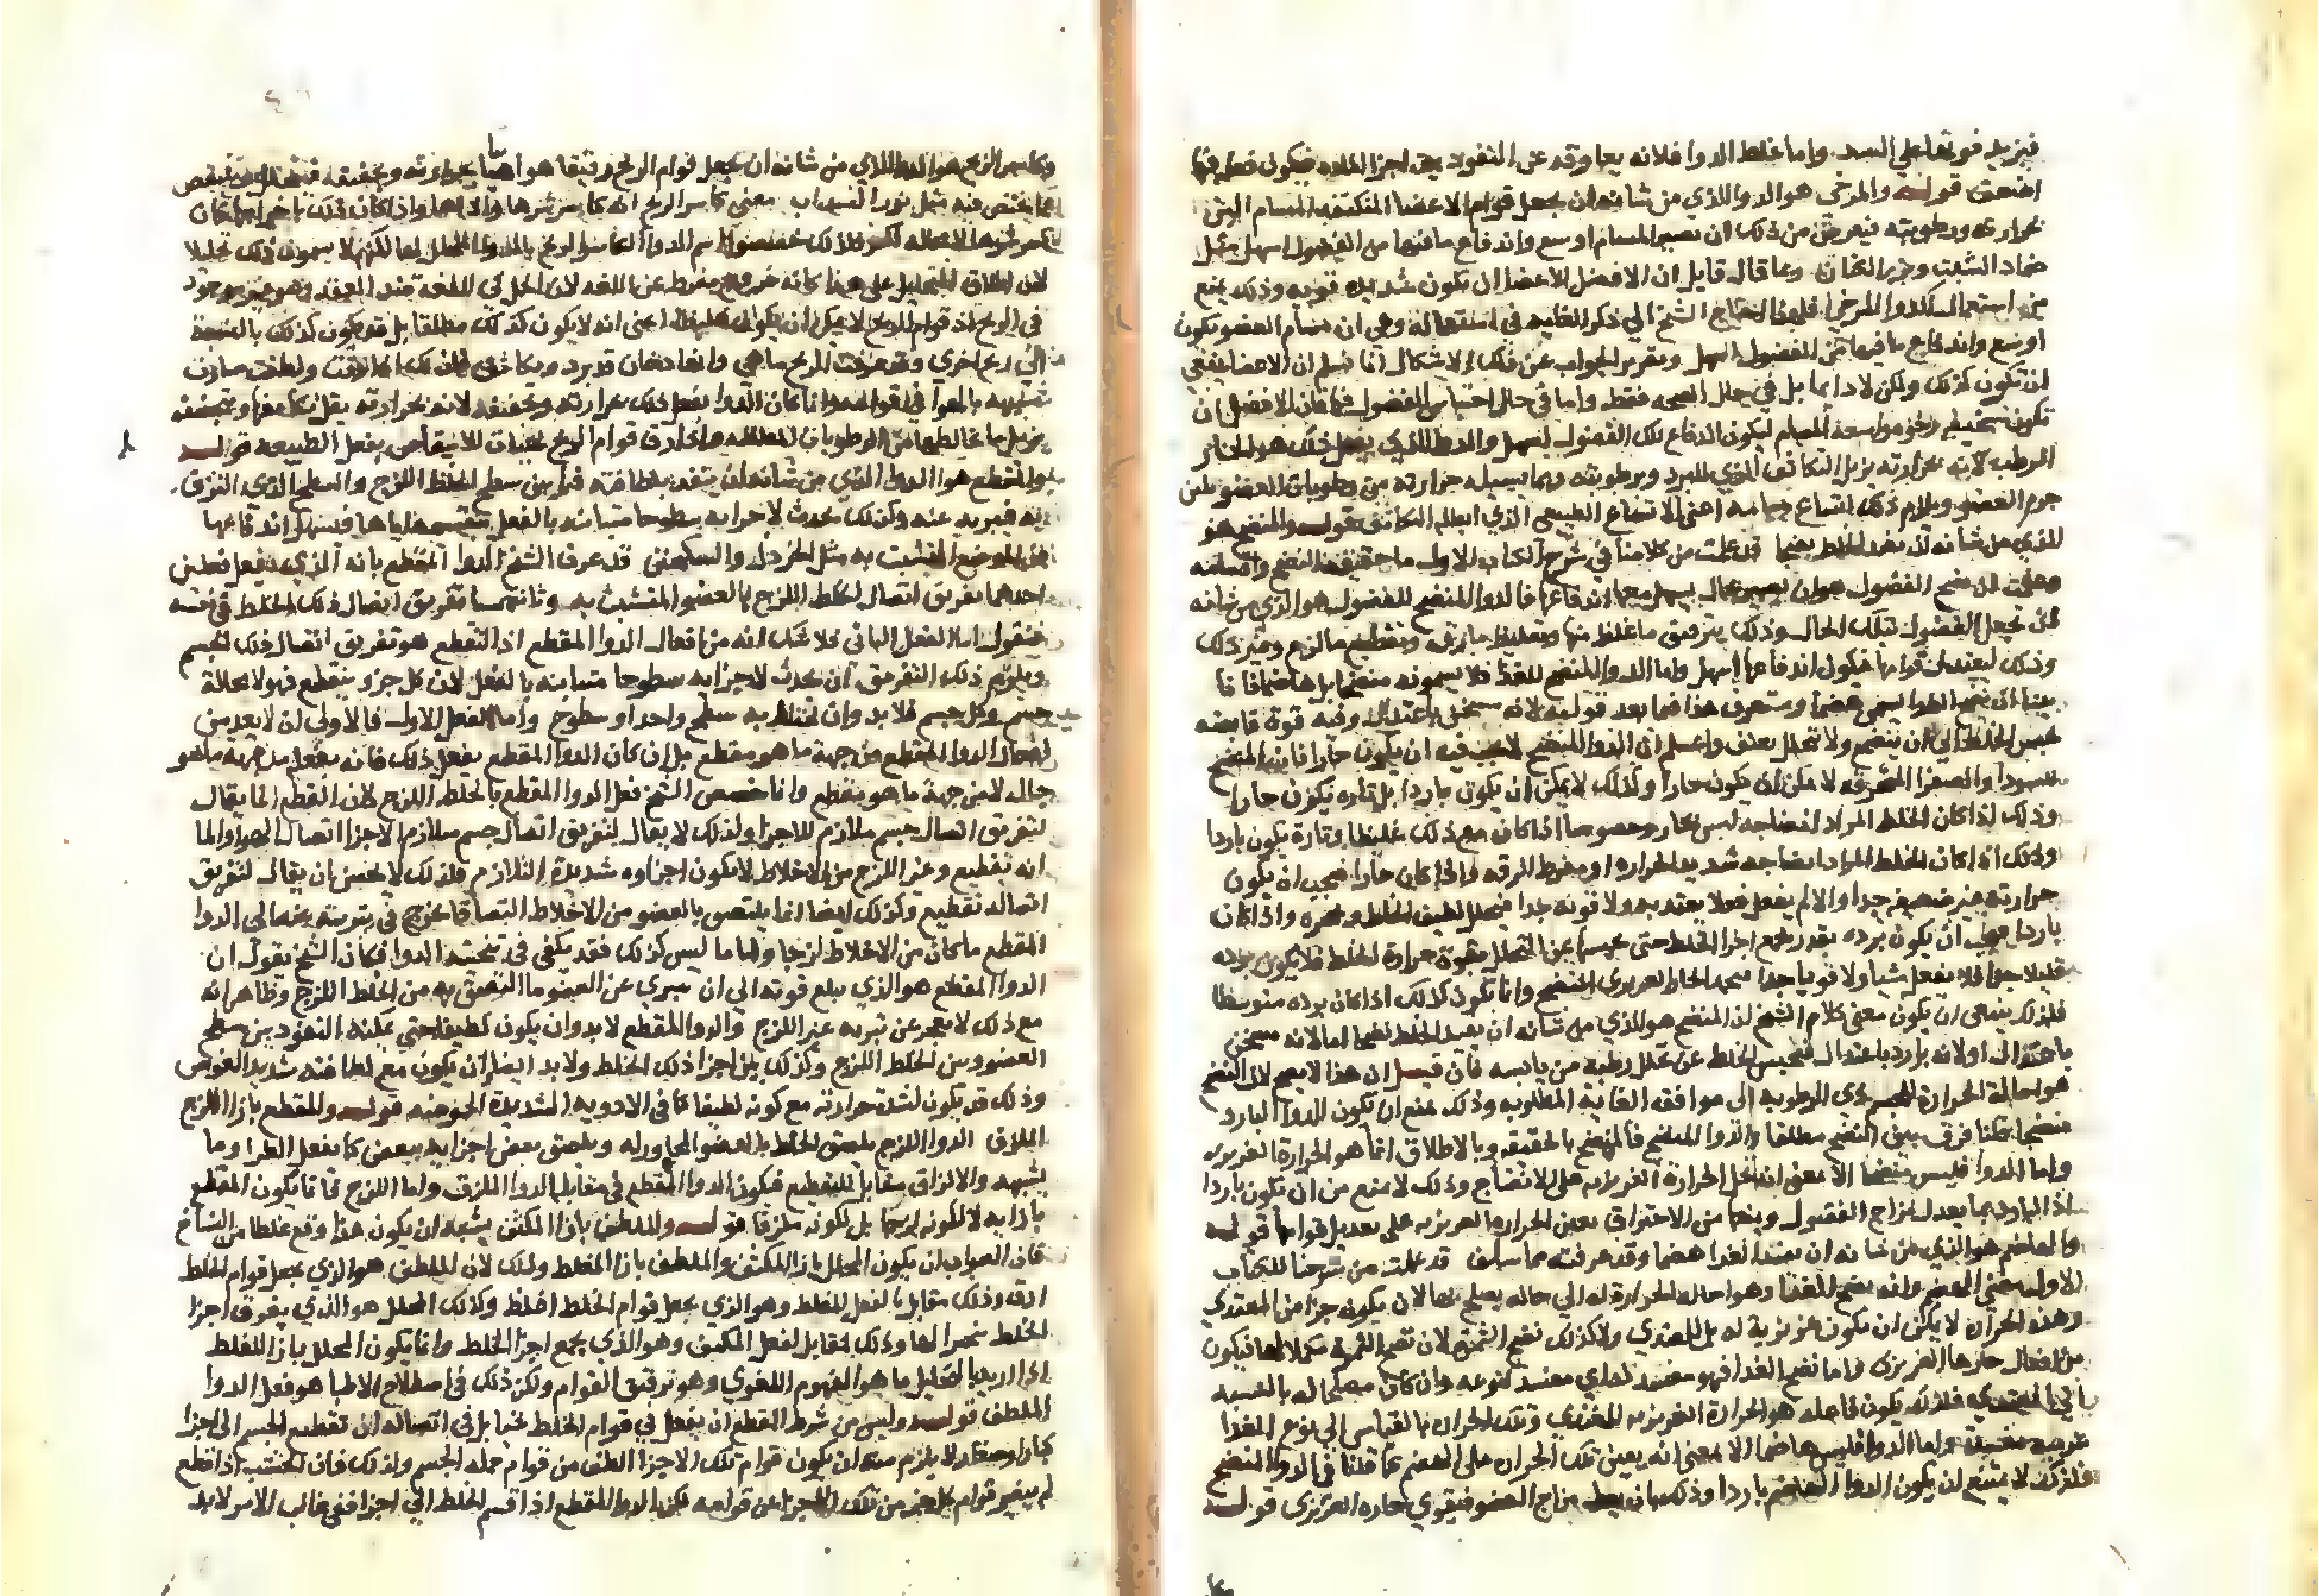 فيزيد قوتها على السد واما غلظ الدوا فلانه يعاوقه عن النفوذ بين اجزا المادة فيكون فعله فيها
اضعف قوله والمرخي هو الدوا الذي من شانه ان يجعل قوام الاعضا المتكثفة المسام الين
بحرارته ورطوبته فيعرض من ذلك ان تصير المسام اوسع واندفاع ما فيها من الفضول اسهل مثل
ضماد الشبت وبزر الكتان وعا قال قايل ان الافضل للاعضا ان يكون شديدة قوية وذلك يمنع
من استعمال الدوا المرخي فلهذا احتاج الشيخ الي ذكر الغاية في استعماله وهي ان مسام العضو يكون
اوسع واندفاع ما فيها من الفضول اسهل وتقرير الجواب عن ذلك الاشكال انا نسلم ان الاعضا ينبغي
ان تكون كذلك ولكن لا دايما بل في حال الصحه فقط واما في حال احتباس الفضول فيها فان الافضل ان
تكون سخيفة رخوة واسعة المسام ليكون اندفاع تلك الفضول اسهل والدوا الذي يفعل ذلك هو الحار
المرطب لانه بحرارته يزيل التكاثف الذي للبرد وبرطوبته وبما يسيله حرارته من رطوبات العضو يلين
جرم العضو ويلزم ذلك اتساع مسامه اعني الاتساع الطبيعي الذي ابطله التكاثف قوله والمنضج هو
الذي من شانه ان يفيد الخلط نضجا قد علمت من كلامنا في شرح الكتاب الاول ما حقيقة النضج واصنافه
وعلمت ان نضج الفضول هو ان يصير بحال يسهل معها اندفاعها فالدوا المنضج للفضول هو الذي من شانه
ان يجعل الفضول بتلك الحال وذلك بترقيق ما غلظ منها وتغليظ ما رق وتقطيع ما لزج وغير ذلك
وذلك ليعتدل قوامها فيكون اندفاعها اسهل واما الدوا المنضج للغذا فلا يسمونه منضجا بل هاضما فانا
بينا ان نضج الغذا يسمى هضما وستعرف هذا فيما بعد قوله لانه مسخن باعتدال وفيه قوة قابضه
تحبس الخلط الي ان ينضج ولا تحلل بعنف واعلم ان الدوا المنضج لا يجب فيه ان يكون حارا فان المنضج
للسودا والصفرا المحترقة لا يمكن ان يكون حارا وكذلك لا يمكن ان يكون باردا بل تارة يكون حارا
وذلك اذا كان الخلط المراد انضاجه ليس بحار وخصوصا اذا كان مع ذلك غليظا وتارة يكون باردا
وذلك اذا كان الخلط المراد انضاجه شديد الحرارة او مفرط الرقه واذا كان حارا فيجب ان يكون
حرارته غير ضعيفه جدا والا لم يفعل فعلا يعتد به ولا قوته جدا فيحلل لطيف الخلط ويحجره واذا كان
باردا فيجب ان يكون برده بقدر يجمع اجزا الخلط حتى يحبسها عن التحلل بقوة حرارة الخلط فلا يكون برده
قليلا جدا فلا يفعل شيا ولا قويا جدا فيجمد الخلط الحار الغريزي المنضج وانما يكون كذلك اذا كان برده متوسطا
فلذلك ينبغي ان يكون معنى كلام الشيخ ان المنضج هو الذي من شانه ان يفيد الخلط نضجا اما لانه مسخن
باعتدال او لانه بارد باعتدال فيحبس الخلط عن تحلل رطبه من يابسه فان قيل ان هذا لا يصح لان النضج
هو احالة الحرارة للجسم ذي الرطوبه الى موافقه الغاية المطلوبه وذلك يمنع ان يكون للدوا البارد
منضجا قلنا فرق بين المنضج مطلقا والدوا المنضج فالمنضج بالحقيقه وبالاطلاق انما هو الحرارة الغريزيه
واما الدوا فليس منضجا الا بمعنى انه يعين الحرارة الغريزيه على الانضاج وذلك لا يمنع من ان يكون باردا
اذ البارد بما يعدل مزاج الفضول ويمنعها من الاحتراق يعين الحرارة الغريزيه على تعديل قوامها قوله
والهاضم هو الذي من شانه ان يفيد الغذا هضما وقد عرفته مما سلف قد علمت من شرحنا للكتاب
الاول معنى الهضم وانه نضج للغذا وهو احالة الحرارة له الي حاله يصلح بها لان يكون جزا من المغتذي
وهذه الحرارة لا يمكن ان يكون غريزية له بل للمغتذي ولا كذلك نضج الثمرة لان نضج الثمرة تكملا لها فيكون
من افعال حارها الغريزي واما نضج الغذا فهو مفسد له اي مفسد لنوعه وان كان مصلحا له بالنسبه
الي المغتذي فلذلك يكون فاعله هو الحرارة الغريزيه للمغتذي وتلك الحرارة بالقياس الي نوع الغذا
غريبه مفسدة واما الدوا فليس هاضما الا بمعنى انه يعين تلك الحرارة على الهضم كما قلنا في الدوا المنضج
فلذلك لا يمتنع ان يكون الدوا الهاضم باردا وذلك بان يعدل مزاج العضو فيقوي حاره الغريزى قوله
وكاسر الرياح هو الدوا الذي من شانه ان يجعل قوام الريح رقيقا هوائيا بحرارته وتجفيفه فيتحلل وينتقض
عما يحتقن فيه مثل بزر السداب معنى كاسر الريح انه كاسر شرها واذاها واذا كان ذلك باخراجها كان
الكسر لحدها لا محاله لكن فلذلك خصصوا اسم الدوا الكاسر للريح بالدوا المحلل لها لكنهم لا يسمون ذلك تحليلا
لان اطلاق التحليل على هذا كانه خروج مفرط عن اللغه لان الحل في اللغة ضد العقد وهو غير موجود
في الريح اذ قوام الريح لا يمكن ان يكون غليظا اعني انه لا يكون كذلك مطلقا بل قد يكون كذلك بالنسبة
الى ريح اخرى وقد عرفت الريح ما هي وانها دخان قد برد وتكاثف فان تلك اذا لانت ولطفت صارت
شبيهه بالهوا في القوام وانما كان الدوا يفعل ذلك بحرارته وتجفيفه لانه بحرارته يقل تكاثفها وتجفيفه
يزيل ما يخالطها من الرطوبات المغلظه واذا رق قوام الريح تهيات للانتفاض بفعل الطبيعه قوله
والمقطع هو الدوا الذي من شانه ان ينفذ بلطافته فيما بين سطح الخلط اللزج والسطح الذي التزق
به فيبريه عنه وكذلك يحدث لاجزايه سطوحا متباينه بالفعل بتقسيمه اياها فيسهل اندفاعها
من الموضع المتشبث به مثل الخردل والسكنجبين قد عرف الشيخ الدوا المقطع بانه الذي يفعل فعلين
احدهما تفريق اتصال الخلط اللزج بالعضو المتشبث به وثانيهما تفريق اتصال ذلك الخلط في نفسه
فنقول اما الفعل الثاني فلا شك انه من افعال الدوا المقطع اذ التقطع هو تفريق اتصال ذلك الجسم
ويلزم ذلك التفريق ان يحدث لاجزايه سطوحا متباينه بالفعل لان كل جزو ينقطع فهو لا محالة
جسم وكل جسم فلا بد وان يحيط به سطح واحد او سطوح واما الفعل الاول فالاولى ان لا يعد من
افعال الدوا المقطع من جهة ما هو مقطع بل ان كان الدوا المقطع يفعل ذلك فانه يفعله من جهه ما هو
جال لا من جهة ما هو مقطع وانما خصص الشيخ فعل الدوا المقطع بالخلط اللزج لان القطع انما يقال
لتفريق اتصال جسم متلازم للاجزا ولذلك لا يقال لتفريق اتصال جسم متلازم الاجزا اتصال الهوا والما
انه تقطيع وغير اللزج من الاخلاط لا يكون اجزاوه شديدة التلازم فلذلك لا يحسن ان يقال لتفريق
اتصاله تقطيع وكذلك ايضا انما يلتصق بالعضو من الاخلاط التصاقا يحوج في تبريته عنه الى الدوا
المقطع ما كان من الاخلاط لزجا واما ما ليس كذلك فقد يكفى في تنحيته الدوا فكان الشيخ يقول ان
الدوا المقطع هو الذي يبلغ قوته الى ان تبري عن العضو ما التصق به من الخلط اللزج وظاهر انه
مع ذلك لا يعجز عن تبريه غير اللزج والدوا المقطع لا بد وان يكون لطيفا حتي يمكنه النفوذ بين سطح
العضو وبين الخلط اللزج وكذلك بين اجزا ذلك الخلط ولا بد ايضا ان يكون مع لطافته شديد الغوص
وذلك قد يكون لشدة حرارته مع كونه لطيفا كما في الادويه الشديدة الحريفه قوله والمقطع بازا اللزج
الملزق الدوا اللزج يلصق الخلط بالعضو المجاور له ويلصق بعض اجزايه ببعض كما يفعل الغرا وما
يشبهه والالزاق مقابل للتقطيع فيكون الدوا المقطع في مقابل الدوا الملزق واما اللزج فانما يكون المقطع
بازايه لا لكونه لزجا بل لكونه ملزقا قوله والملطف بازا المكثف يشبه ان يكون هذا وقع غلطا من النساخ
فان الصواب ان يكون المحلل بازا المكثف والملطف بازا المغلظ وذلك لان الملطف هو الذي يجعل قوام الخلط
ارق وذلك مقابل لفعل المغلظ وهو الذي يجعل قوام الخلط اغلظ وكذلك المحلل هو الذي يفرق اجزا
الخلط مبخرا لها وذلك مقابل لفعل المكثف وهو الذي يجمع اجزا الخلط وانما يكون المحلل بازا المغلظ
اذا اريد بالتحليل ما هو المفهوم اللغوي وهو ترقيق القوام ولكن ذلك في اصطلاح الاطبا هو فعل الدوا
الملطف قوله وليس من شرط المقطع ان يفعل في قوام الخلط شيا بل في اتصاله ان تقطيع الجسم الى اجزا
كبار او صغار لا يلزم منه ان يكون قوام تلك الاجزا الطف من قوام جمله الجسم ولذلك فان الخشب اذا قطع
لم يتغير قوام كل جزو من تلك الاجزا عن قوامه لكن الدوا المقطع اذا قسم الخلط الي اجزا ففي غالب الامر لا بد